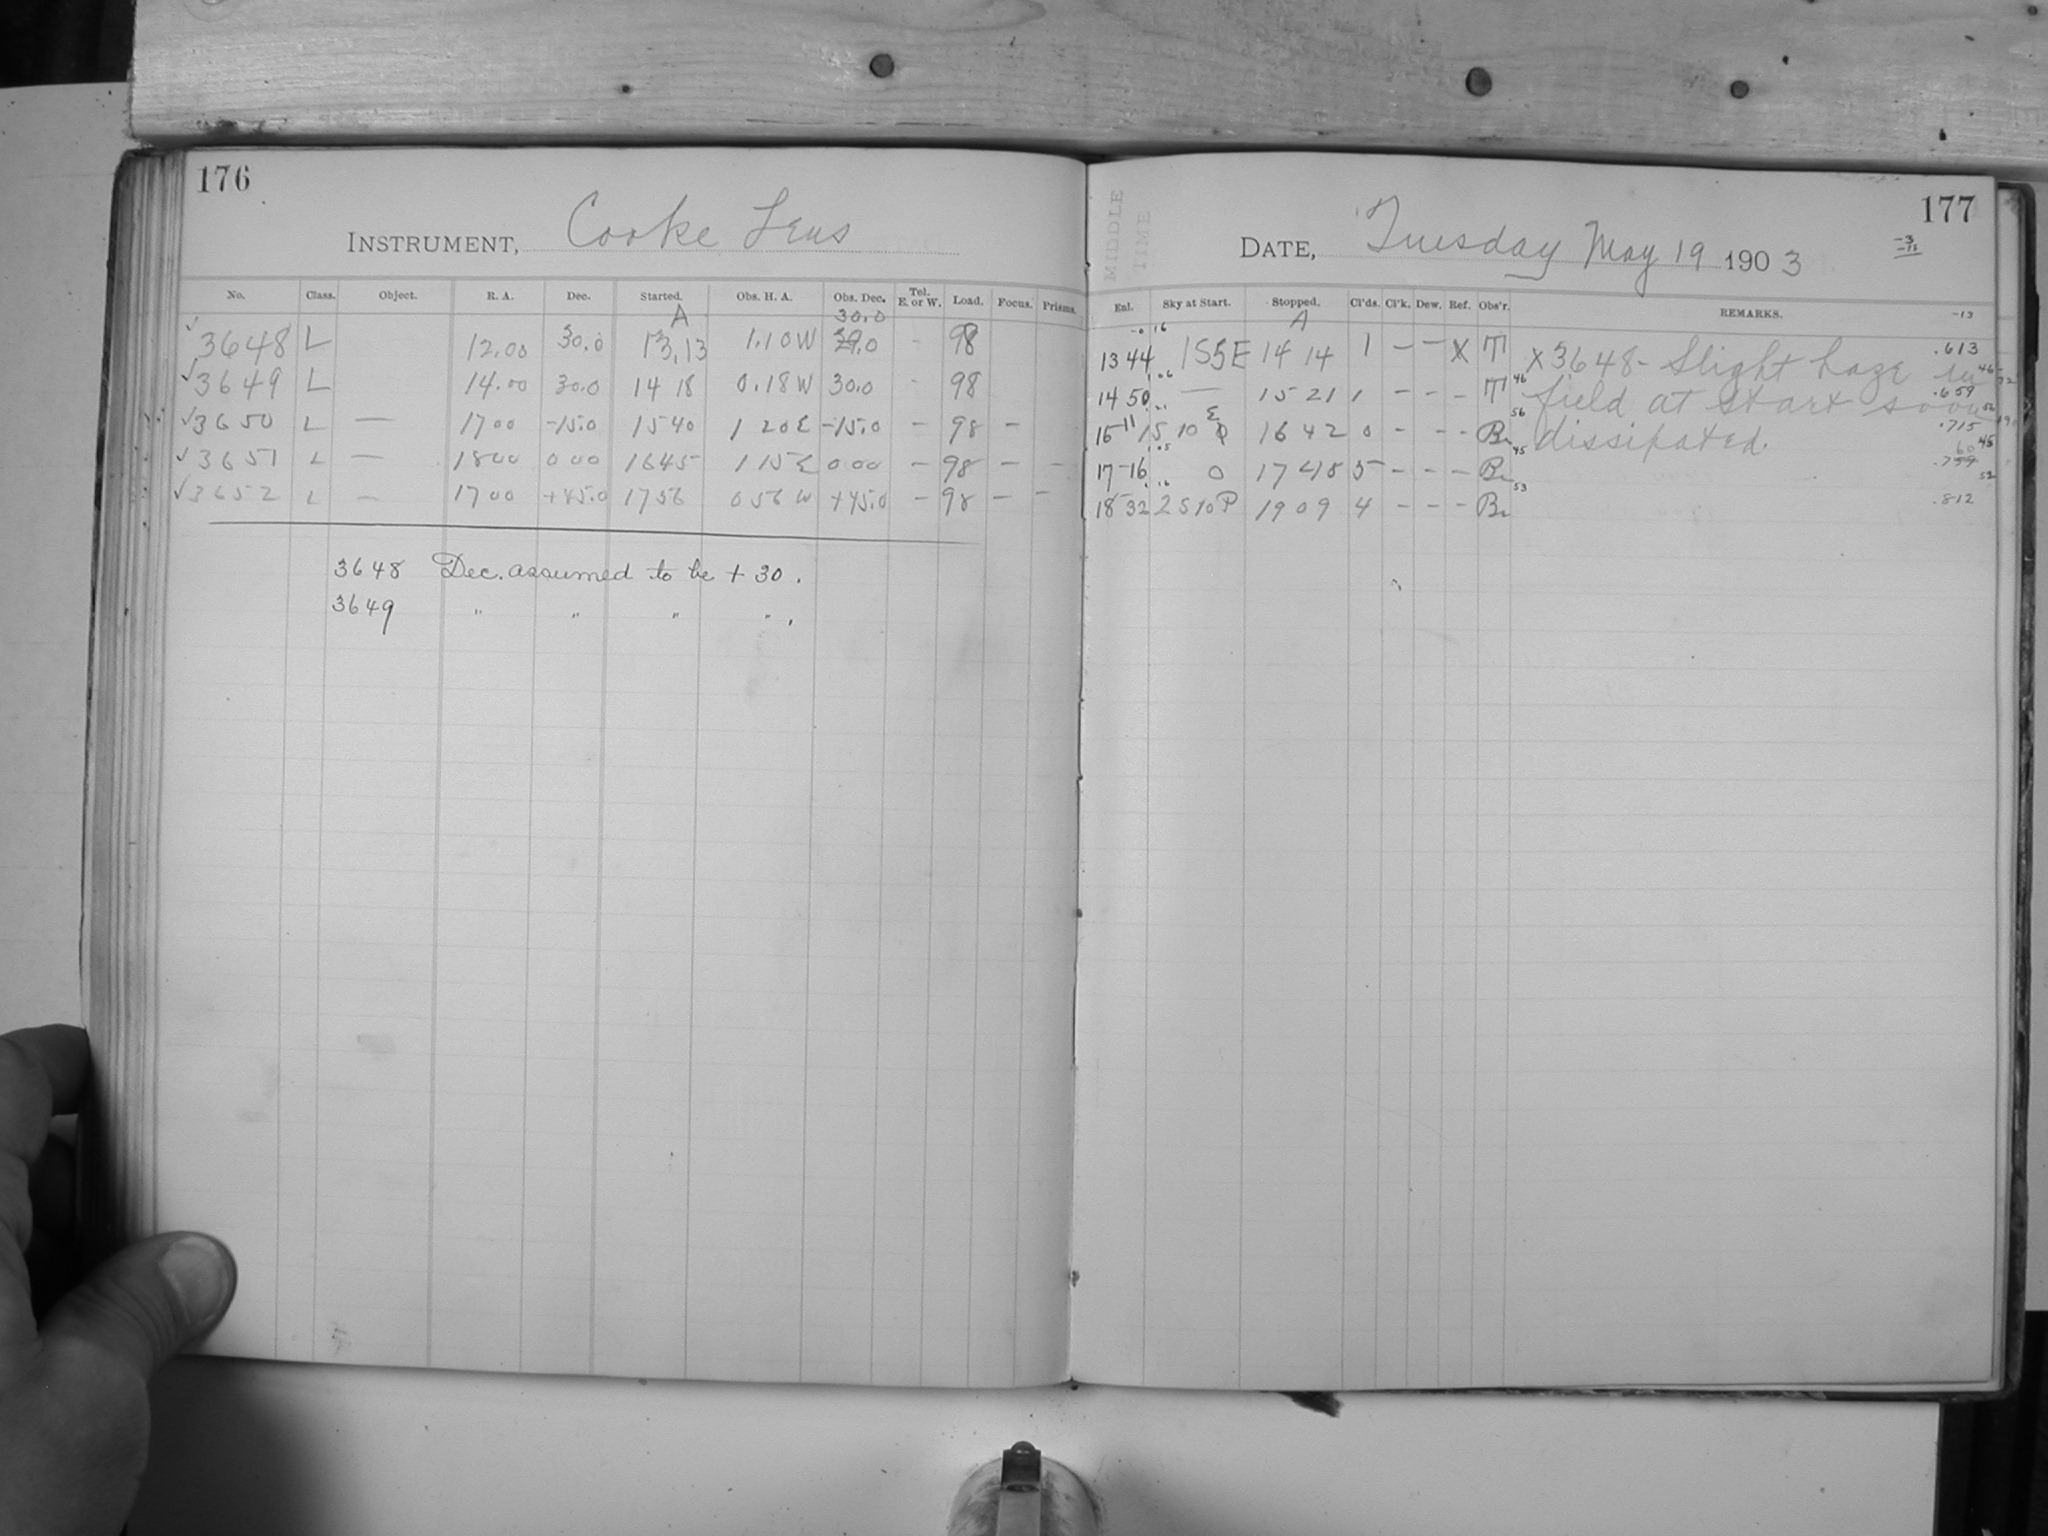 176
INSTRUMENT, Cooke Lens
No. Class. Object. R. A. Dec. Started. Obs. H. A. Obs. Dec. Tel. E. or W. Load. Focus. Prisms.
A 30.0
3648 L 12.00 30.0 13.13 1.10 W 29.0 - 98
3649 L 14.00 30.0 14 18 0.18 W 30.0 - 98
3650 L — 17 00 -15.0 15 40 1 20 E -15.0 - 98 -
3651 L — 18 00 0 00 16 45 1 15 E 0 00 - 98 - -
3652 L — 17 00 +45.0 17 56 0 56 W +45.0 - 98 - -
3648 Dec. assumed to be + 30.
3649 " " " ".
177
MIDDLE TIME
DATE, Tuesday May 19 1903
-3
-13
Enl. Sky at Start. Stopped. Cl'ds. Cl'k. Dew. Ref. Obs'r. REMARKS. -13
A
13 44 1S5E 14 14 1 — — X T X3648 - Slight haze in .613
14 50 — 15 21 1 - - - T field at start soon .659
16-11 15 10 E 16 42 0 - - - Br dissipated. .715
17-16 0 17 48 5 - - - Br .759
18-32 2 S 10 P 19 09 4 - - - Br .812